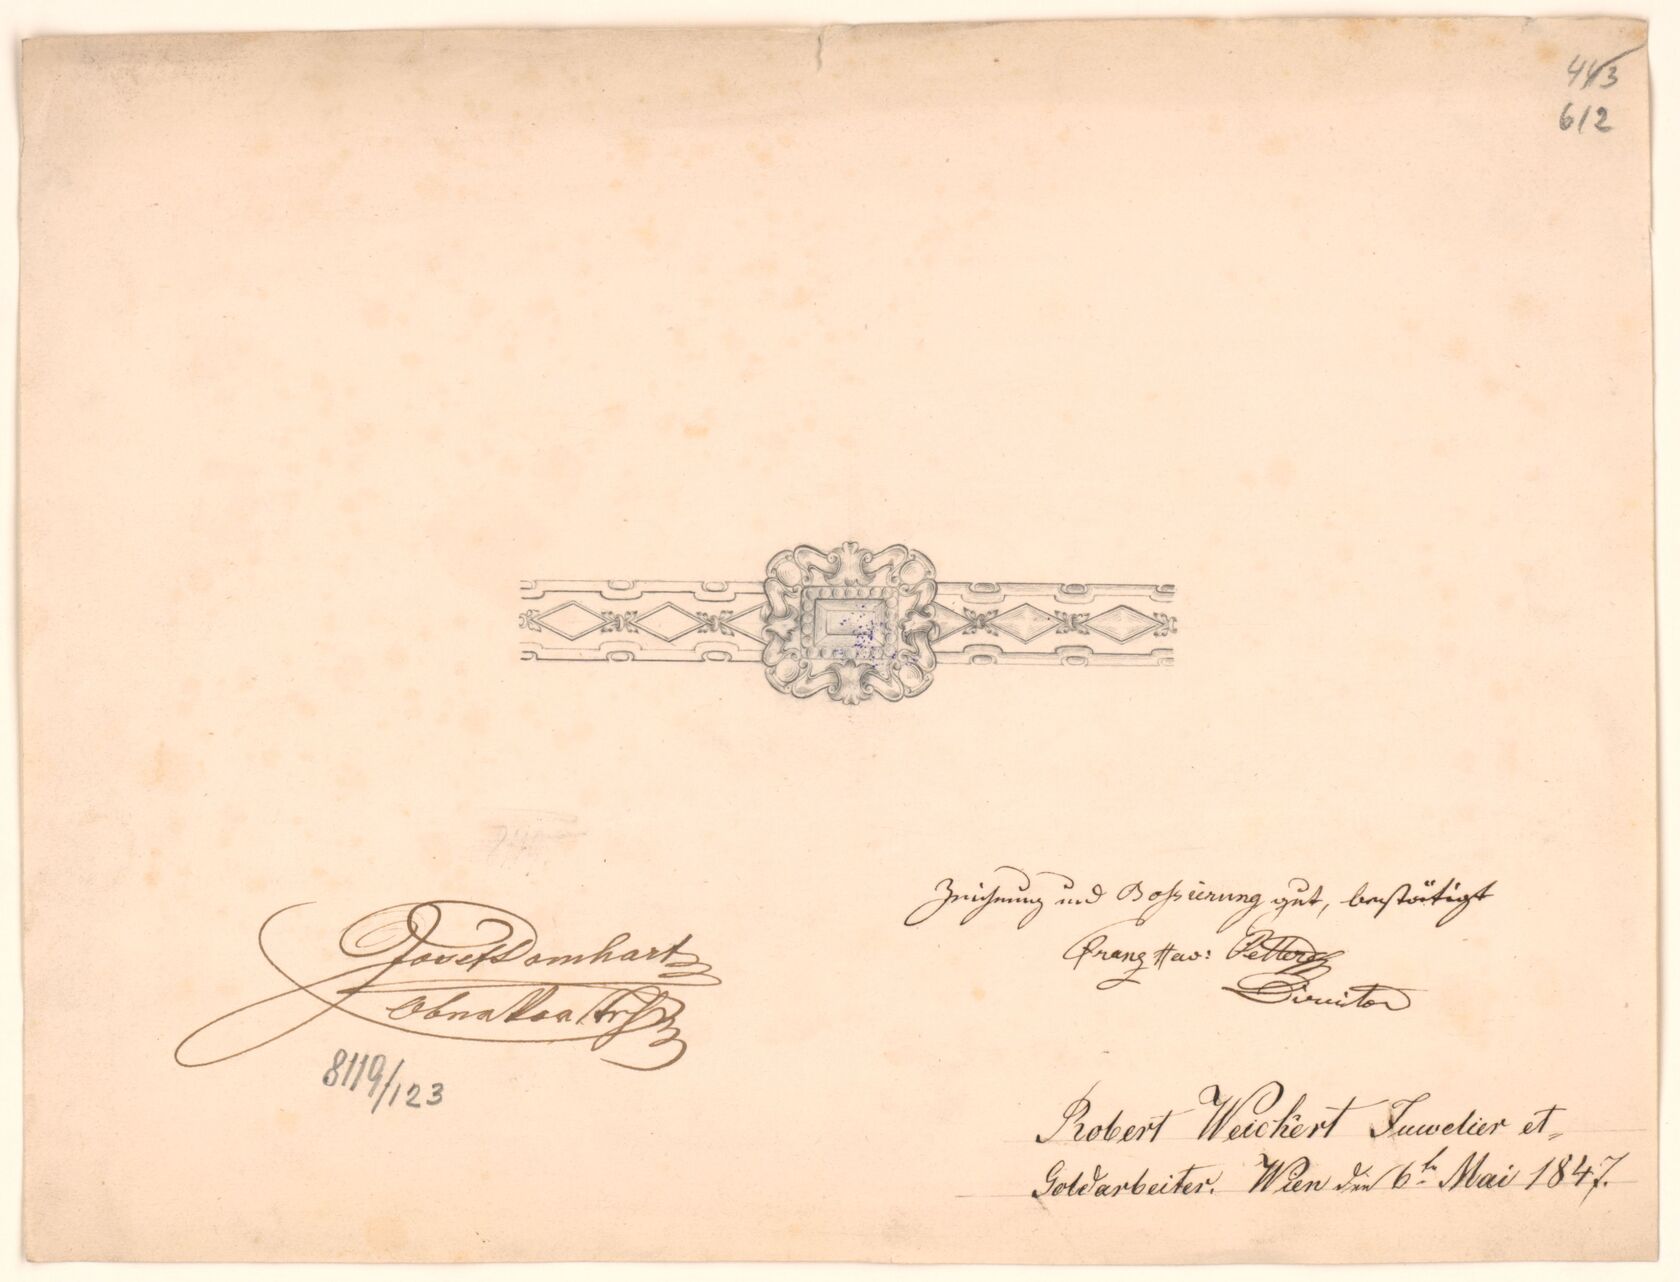 443
612
Zeichnung und Bossierung gut, bestätigt
Franz Xav: Petter
Director
Josef Domhart
8119/123
Robert Weichert Juwelier et
Goldarbeiter. Wien den 6tn Mai 1847.